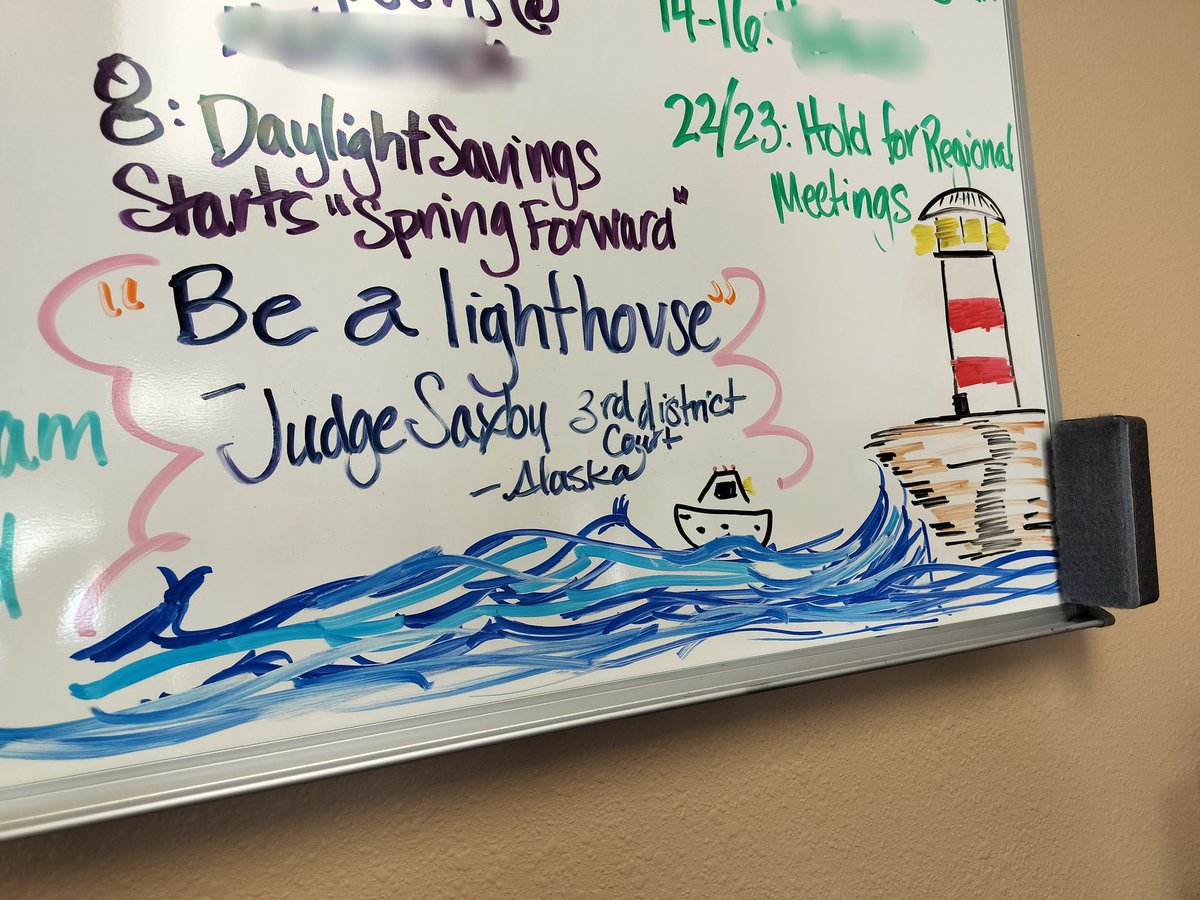 14-16:
8: Daylight Savings
Starts "Spring Forward"
22/23: Hold for Regional
Meetings
"Be a lighthouse"
- Judge Saxby 3rd district
Court
- Alaska
am